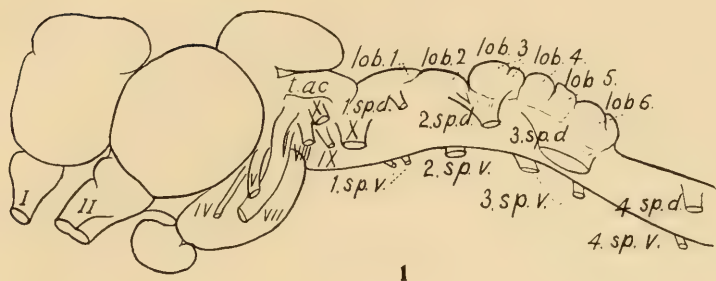 lob. 1
lob. 2
lob. 3
lob. 4
lob 5.
lob 6.
t.ac
X
1.sp.d.
2.sp.d.
3.sp.d
X
VIII
IX
I
II
IV
V
VII
1.sp.v.
2.sp.v.
3.sp.v.
4.sp.d.
4.sp.v.
1